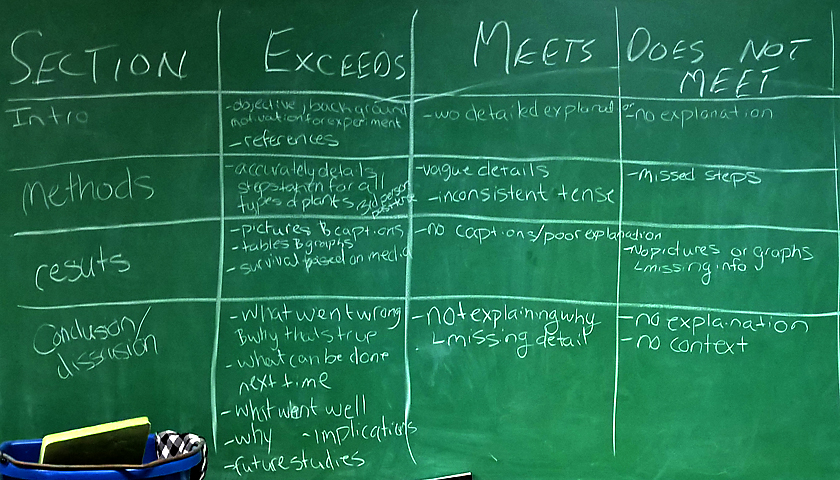 SECTION
EXCEEDS
MEETS
DOES NOT
MEET
Intro
-objective, background
motivation for experiment
-references
-wo detailed explaned or
-no explanation
Methods
-accurately details
steps taken for all
types of plants 3rd person
-vague details
-inconsistent tense
-missed steps
resuts
-pictures & captions
-tables & graphs
-survival based on media
-no captions/poor explanation
-No pictures or graphs
missing info
Conclusion/
-what went wrong
& why thats true
-what can be done
next time
-what went well
-why -implications
-future studies
-not explaining why
missing detail
-no explaination
-no context